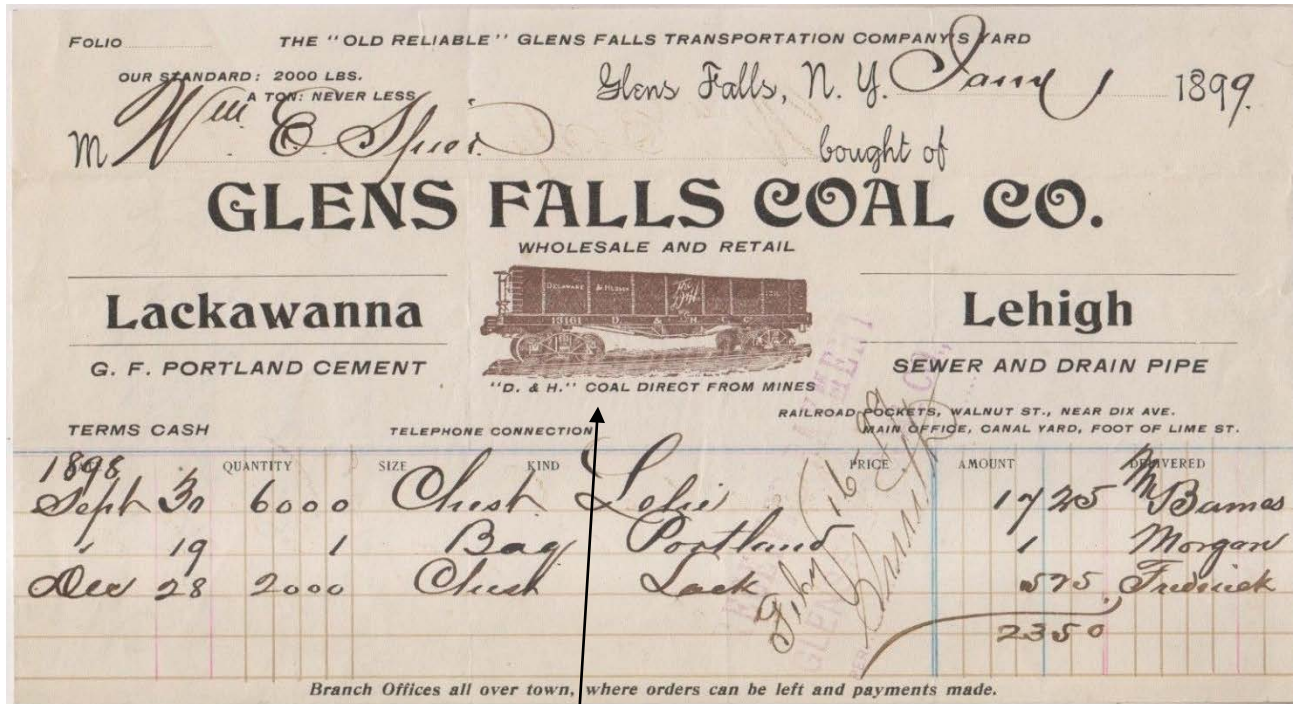 FOLIO THE "OLD RELIABLE" GLENS FALLS TRANSPORTATION COMPANY'S YARD
OUR STANDARD: 2000 LBS.
A TON: NEVER LESS
Glens Falls, N. Y. Jany 1 1899.
M Wm. E. Spier. bought of
GLENS FALLS COAL CO.
WHOLESALE AND RETAIL
Lackawanna
G. F. PORTLAND CEMENT
DELAWARE & HUDSON
13161 D & H C Co
"D. & H." COAL DIRECT FROM MINES
Lehigh
SEWER AND DRAIN PIPE
RAILROAD POCKETS, WALNUT ST., NEAR DIX AVE.
MAIN OFFICE, CANAL YARD, FOOT OF LIME ST.
TERMS CASH TELEPHONE CONNECTION
1898 QUANTITY SIZE KIND PRICE AMOUNT DELIVERED
Sept 30 6000 Chest Lehi 17 25 Barnes
" 19 1 Bag Portland 1 Morgan
Dec 28 2000 Chest Lack 5 75 Fredrick
23 50
Feby 16-99
PAYMENT
GLENS CO.
Branch Offices all over town, where orders can be left and payments made.